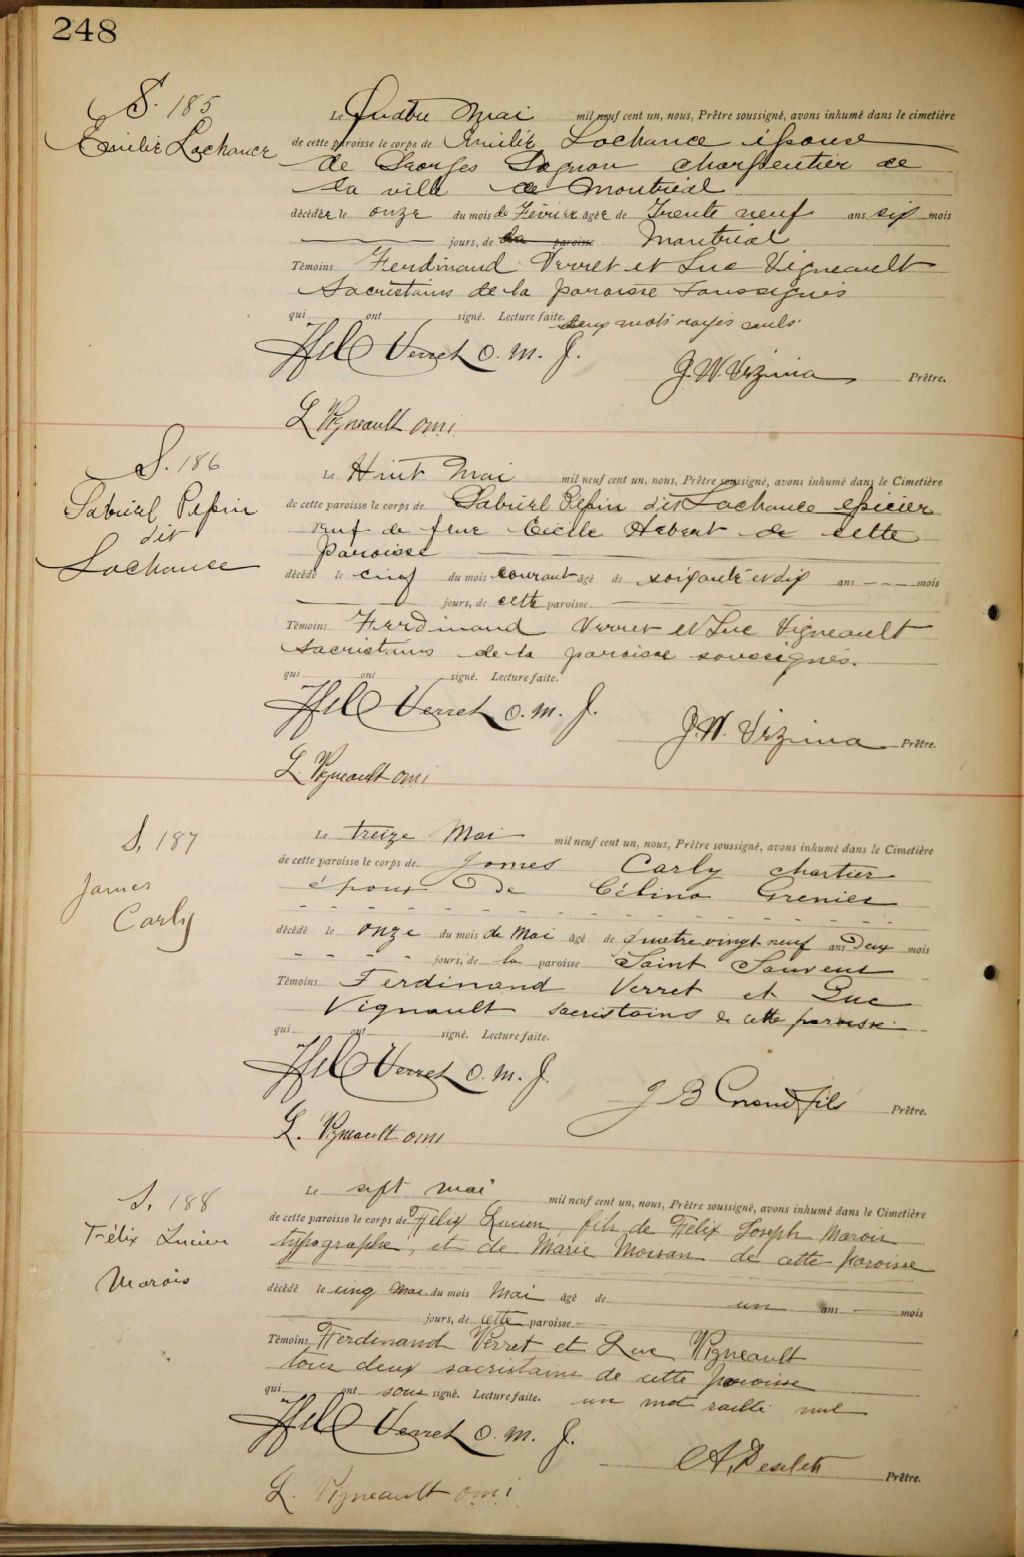 248
S. 185
Emilie Lachance
Le Quatre Mai mil neuf cent un, nous, Prêtre soussigné, avons inhumé dans le cimetière
de cette paroisse le corps de Emilie Lachance épouse
de Georges Gagnon charpentier de
la ville de Montréal
décédée le onze du mois de Février âgée de Trente neuf ans six mois
jours, de la paroisse Montréal
Témoins Ferdinand Verret et Luc Vigneault
Sacristains de la paroisse soussignés
qui ont signé. Lecture faite. deux mots rayés nuls.
Verret O. M. J.
J. W. Vézina Prêtre.
L Vigneault omi
S. 186
Gabriel Pepin
dit
Lachance
Le Huit Mai mil neuf cent un, nous, Prêtre soussigné, avons inhumé dans le Cimetière
de cette paroisse le corps de Gabriel Pepin dit Lachance épicier
veuf de feue Cécile Hebert de cette
paroisse
décédé le cinq du mois courant âgé de soixante et dix ans mois
jours, de cette paroisse
Témoins Ferdinand Verret et Luc Vigneault
Sacristains de la paroisse soussignés.
qui ont signé. Lecture faite.
Verret O. M. J.
J. W. Vézina Prêtre.
L. Vigneault omi
S. 187
James
Carly
Le treize Mai mil neuf cent un, nous, Prêtre soussigné, avons inhumé dans le Cimetière
de cette paroisse le corps de James Carly chartier
époux de Célina Grenier
décédé le onze du mois de Mai âgé de quatre vingt neuf ans Deux mois
jours, de la paroisse Saint Sauveur
Témoins Ferdinand Verret et Luc
Vignault sacristains de cette paroisse.
qui ont signé. Lecture faite.
Verret O. M. J.
J B Grandfils Prêtre.
L. Vigneault omi
S. 188
Félix Lucien
Marois
Le sept mai mil neuf cent un, nous, Prêtre soussigné, avons inhumé dans le Cimetière
de cette paroisse le corps de Félix Lucien, fils de Félix Joseph Marois
typographe, et de Marie Moisan de cette paroisse
décédé le cinq mai du mois Mai âgé de un ans mois
jours, de cette paroisse
Témoins Ferdinand Verret et Luc Vigneault
tous deux sacristains de cette paroisse
qui ont sous signé. Lecture faite. un mot raillé nul
Verret O. M. J.
Prêtre.
L. Vigneault omi